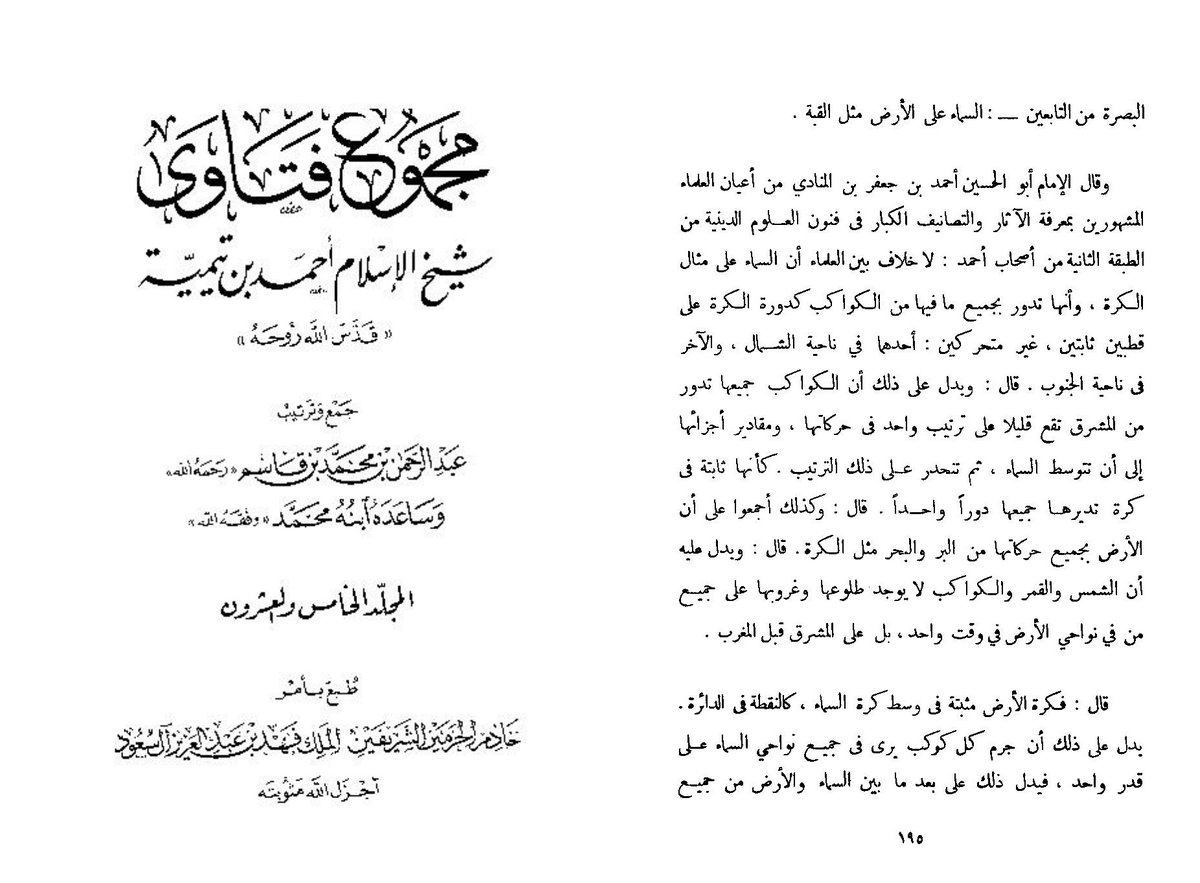 مجموع فتاوى
شيخ الإسلام أحمد بن تيمية
« قَدَّسَ اللَّه رُوحَهُ »
جمع وترتيب
عبد الرحمن بن محمد بن قاسم «رحمه الله»
وساعده ابنه محمد «وفقه الله»
المجلد الخامس والعشرون
طبع بأمر
خادم الحرمين الشريفين الملك فهد بن عبد العزيز آل سعود
أجزل الله مثوبته
البصرة من التابعين — : السماء على الأرض مثل القبة .
وقال الإمام أبو الحسين أحمد بن جعفر بن المنادي من أعيان العلماء
المشهورين بمعرفة الآثار والتصانيف الكبار فى فنون العلوم الدينية من
الطبقة الثانية من أصحاب أحمد : لا خلاف بين العلماء أن السماء على مثال
الكرة ، وأنها تدور بجميع ما فيها من الكواكب كدورة الكرة على
قطبين ثابتين ، غير متحركين : أحدهما في ناحية الشمال ، والآخر
فى ناحية الجنوب . قال : ويدل على ذلك أن الكواكب جميعها تدور
من المشرق تقع قليلا على ترتيب واحد فى حركاتها ، ومقادير أجزائها
إلى أن تتوسط السماء ، ثم تنحدر على ذلك الترتيب . كأنها ثابتة فى
كرة تديرها جميعها دوراً واحداً . قال : وكذلك أجمعوا على أن
الأرض بجميع حركاتها من البر والبحر مثل الكرة . قال : ويدل عليه
أن الشمس والقمر والكواكب لا يوجد طلوعها وغروبها على جميع
من في نواحي الأرض في وقت واحد ، بل على المشرق قبل المغرب .
قال : فكرة الأرض مثبتة فى وسط كرة السماء ، كالنقطة فى الدائرة .
يدل على ذلك أن جرم كل كوكب يرى فى جميع نواحي السماء على
قدر واحد ، فيدل ذلك على بعد ما بين السماء والأرض من جميع
١٩٥